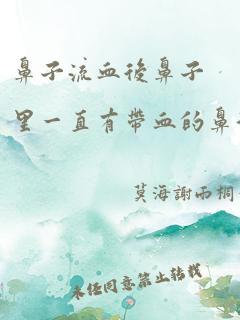 鼻子流血後鼻子
里一直有帶血的鼻
莫海謝而桐
未经同意禁止转载